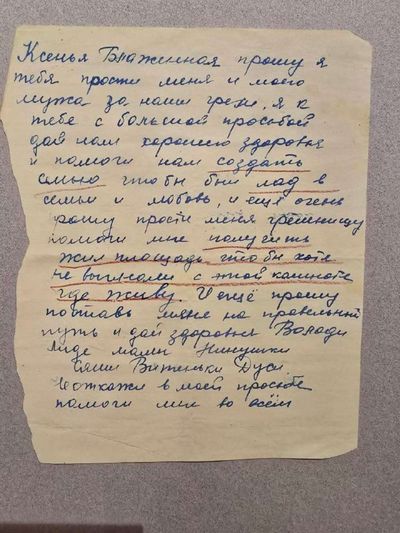 Ксенья Блаженная прошу я
тебя прости меня и моего
мужа за наши грехи, я к
тебе с большой просьбой
дай нам хорошего здоровья
и помоги нам создать
семью чтобы был лад в
семьи и любовь, и ещё очень
прошу прости меня грешницу
помоги мне получить
жил площадь чтобы хотя
не выписали с этой камноте
где живу. И ещё прошу
поставь меня на правельный
путь и дай здоровья Володи
Лиде мамы Нинушки
Витеньки Дуси
Не откажи в моей просьбе
помоги мне во всём